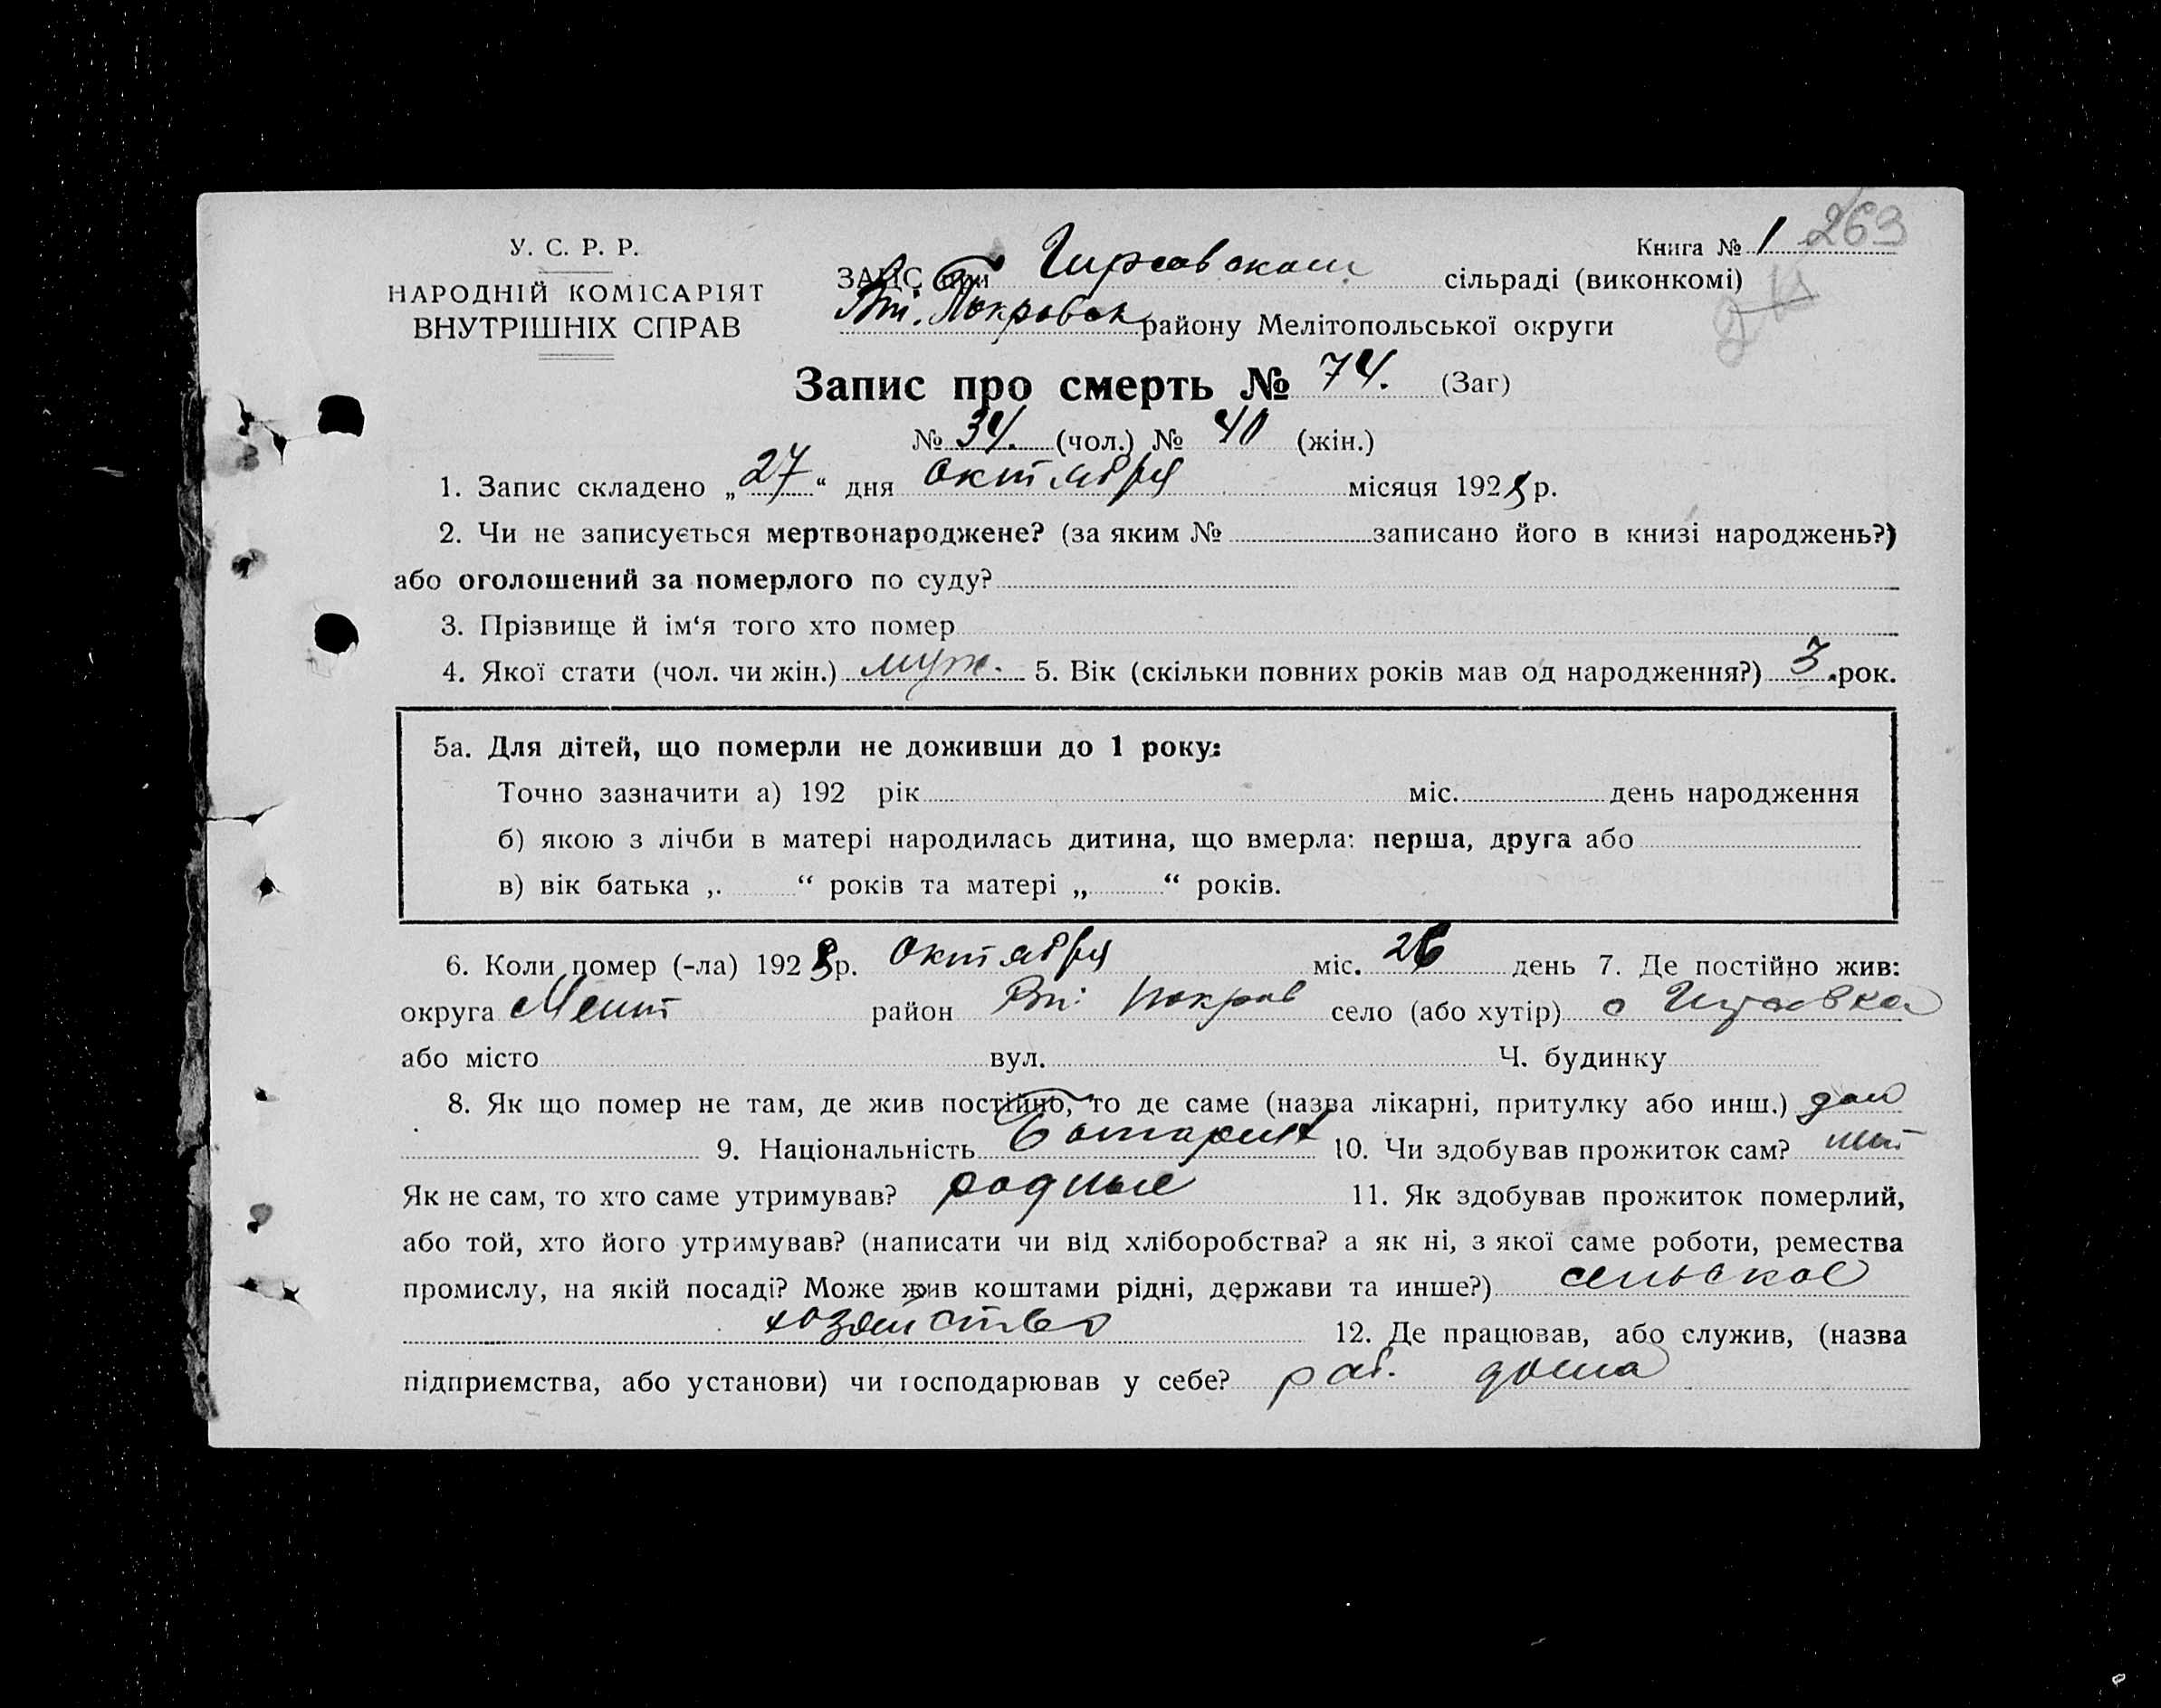 У. С. Р. Р.
НАРОДНІЙ КОМІСАРІЯТ
ВНУТРІШНІХ СПРАВ
Книга № 1 263
ЗАЦС при Гирсовском сільраді (виконкомі)
Вт. Покровск району Мелітопольської округи
Запис про смерть № 74. (Заг)
№ 34. (чол.) № 40 (жін.)
1. Запис складено „27“ дня октября місяця 1928 р.
2. Чи не записується мертвонароджене? (за яким № записано його в книзі народжень?)
або оголошений за померлого по суду?
3. Прізвище й ім‘я того хто помер
4. Якої стати (чол. чи жін.) муж. 5. Вік (скільки повних років мав од народження?) 3 рок.
5а. Для дітей, що померли не доживши до 1 року:
Точно зазначити а) 192 рік міс. день народження
б) якою з лічби в матері народилась дитина, що вмерла: перша, друга або
в) вік батька ,. “ років та матері „ “ років.
6. Коли помер (-ла) 1928 р. октября міс. 26 день 7. Де постійно жив:
округа Мелит район Вт: Покров село (або хутір) с Гирсовка
або місто вул. Ч. будинку
8. Як що помер не там, де жив постійно, то де саме (назва лікарні, притулку або инш.) дом
9. Національність Болгарин 10. Чи здобував прожиток сам? нет
Як не сам, то хто саме утримував? родные 11. Як здобував прожиток померлий,
або той, хто його утримував? (написати чи від хліборобства? а як ні, з якої саме роботи, ремества
промислу, на якій посаді? Може жив коштами рідні, держави та инше?) сельское
хозяйство 12. Де працював, або служив, (назва
підприємства, або установи) чи господарював у себе? раб. дома